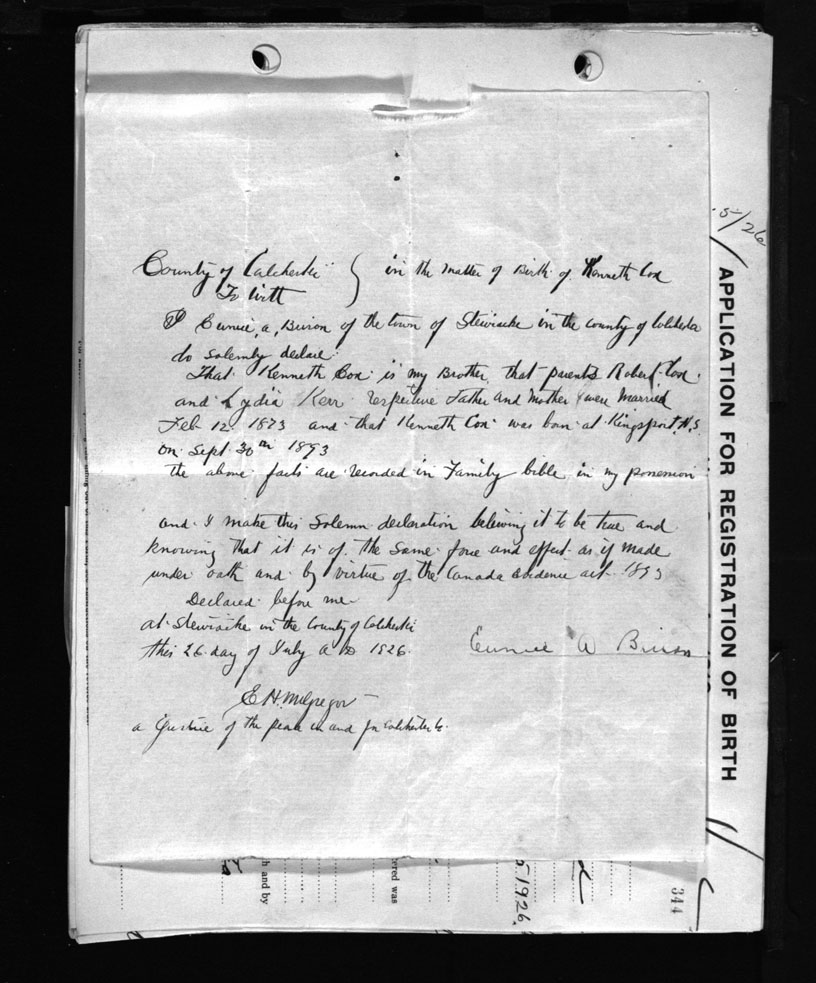 County of Colchester } in the matter of Birth of Kenneth Cox
To Witt
I Eunice, a, of the town of Stewiacke in the county of Colchester
do solemly declare
That Kenneth Cox is my Brother, that parents Robert Cox
and Lydia Kerr respective Father and Mother were Married
Feb 12 1873 and that Kenneth Cox was born at Kingsport, N.S
on Sept 30th 1893
the above facts are recorded in Family bible in my possession
and I make this Solemn declaration believing it to be true and
knowing that it is of the same force and effect as if made
under oath and by virtue of the Canada evidence act 1893
Declared before me
at Stewiacke in the County of Colchester
this 26 day of July A D 1926
Eunice A
E H. McGregor
a Justice of the peace in and for Colchester Co.
5/26
APPLICATION FOR REGISTRATION OF BIRTH
344
5 1926
ered was
h and by